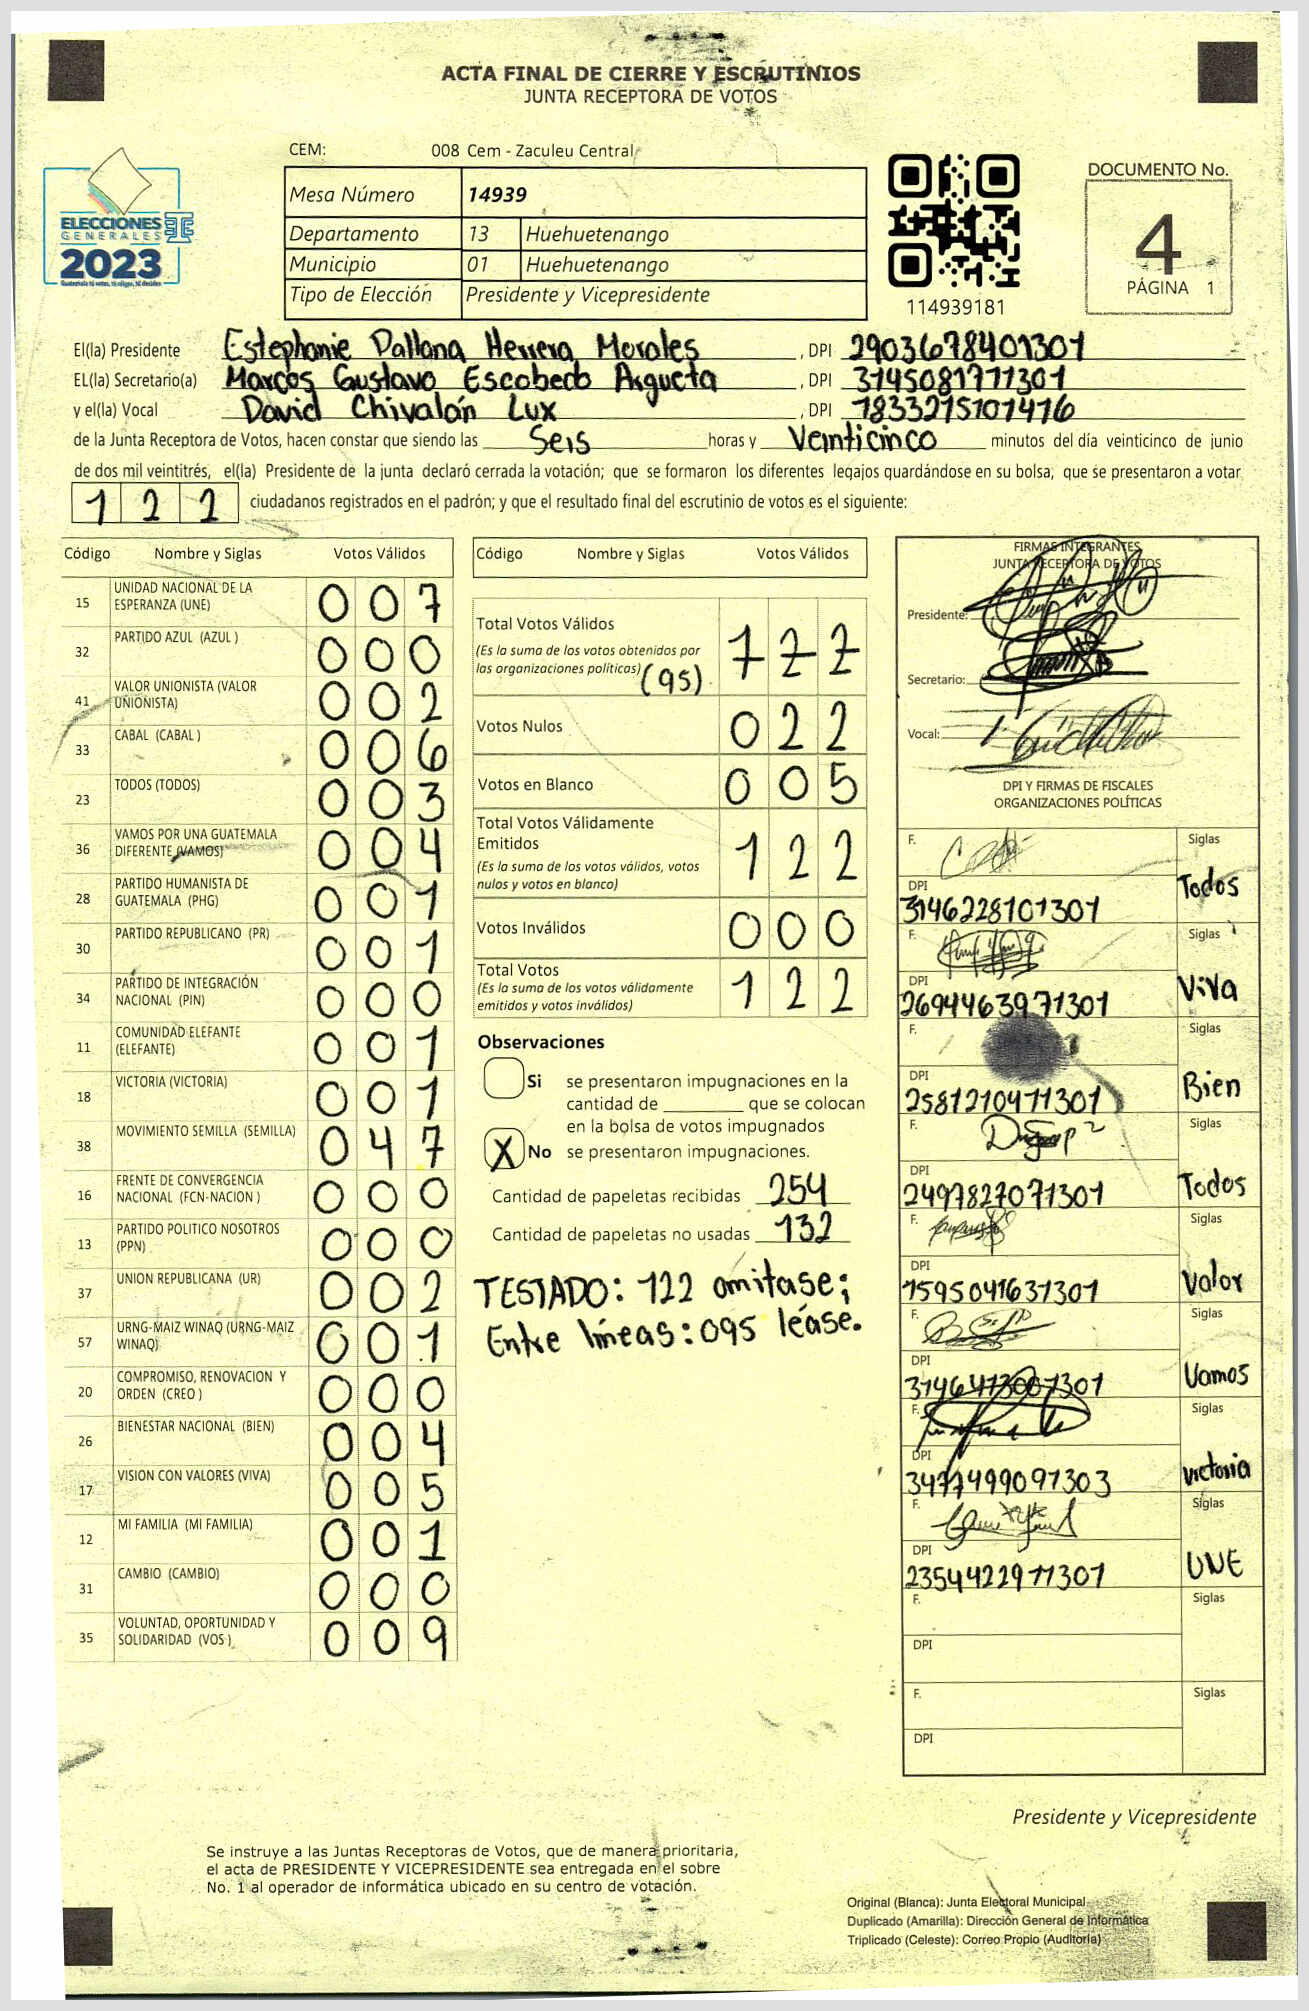 ACTA FINAL DE CIERRE Y ESCRUTINIOS
JUNTA RECEPTORA DE VOTOS
CEM: 008 Cem - Zaculeu Central
Mesa Número 14939
Departamento 13 Huehuetenango
Municipio 01 Huehuetenango
Tipo de Elección Presidente y Vicepresidente
ELECCIONES
GENERALES
TSE
2023
Guatemala tú votas, tú eliges, tú decides
114939181
DOCUMENTO No.
4
PÁGINA 1
El(la) Presidente Estephanie Dallana Herrera Morales, DPI 2903678401301
EL(la) Secretario(a) Marcos Gustavo Escobedo Argueta, DPI 3145081711301
y el(la) Vocal David Chivalán Lux, DPI 1833215101416
de la Junta Receptora de Votos, hacen constar que siendo las Seis horas y Veinticinco minutos del día veinticinco de junio
de dos mil veintitrés, el(la) Presidente de la junta declaró cerrada la votación; que se formaron los diferentes legajos guardándose en su bolsa, que se presentaron a votar
1 2 2 ciudadanos registrados en el padrón; y que el resultado final del escrutinio de votos es el siguiente:
Código Nombre y Siglas Votos Válidos
15 UNIDAD NACIONAL DE LA ESPERANZA (UNE) 0 0 7
32 PARTIDO AZUL (AZUL ) 0 0 0
41 VALOR UNIONISTA (VALOR UNIONISTA) 0 0 2
33 CABAL (CABAL ) 0 0 6
23 TODOS (TODOS) 0 0 3
36 VAMOS POR UNA GUATEMALA DIFERENTE (VAMOS) 0 0 4
28 PARTIDO HUMANISTA DE GUATEMALA (PHG) 0 0 1
30 PARTIDO REPUBLICANO (PR) 0 0 1
34 PARTIDO DE INTEGRACIÓN NACIONAL (PIN) 0 0 0
11 COMUNIDAD ELEFANTE (ELEFANTE) 0 0 1
18 VICTORIA (VICTORIA) 0 0 1
38 MOVIMIENTO SEMILLA (SEMILLA) 0 4 7
16 FRENTE DE CONVERGENCIA NACIONAL (FCN-NACION ) 0 0 0
13 PARTIDO POLITICO NOSOTROS (PPN) 0 0 0
37 UNION REPUBLICANA (UR) 0 0 2
57 URNG-MAIZ WINAQ (URNG-MAIZ WINAQ) 0 0 1
20 COMPROMISO, RENOVACION Y ORDEN (CREO ) 0 0 0
26 BIENESTAR NACIONAL (BIEN) 0 0 4
17 VISION CON VALORES (VIVA) 0 0 5
12 MI FAMILIA (MI FAMILIA) 0 0 1
31 CAMBIO (CAMBIO) 0 0 0
35 VOLUNTAD, OPORTUNIDAD Y SOLIDARIDAD (VOS ) 0 0 9
Código Nombre y Siglas Votos Válidos
Total Votos Válidos 1 2 2
(Es la suma de los votos obtenidos por
las organizaciones políticas) (95)
Votos Nulos 0 2 2
Votos en Blanco 0 0 5
Total Votos Válidamente
Emitidos 1 2 2
(Es la suma de los votos válidos, votos
nulos y votos en blanco)
Votos Inválidos 0 0 0
Total Votos 1 2 2
(Es la suma de los votos válidamente
emitidos y votos inválidos)
Observaciones
Si se presentaron impugnaciones en la
cantidad de ________ que se colocan
en la bolsa de votos impugnados
X No se presentaron impugnaciones.
Cantidad de papeletas recibidas 254
Cantidad de papeletas no usadas 132
TESTADO: 122 omitase;
Entre líneas: 095 léase.
FIRMAS INTEGRANTES
JUNTA RECEPTORA DE VOTOS
Presidente:
Secretario:
Vocal:
DPI Y FIRMAS DE FISCALES
ORGANIZACIONES POLÍTICAS
F. Siglas
DPI 3146228101301 Todos
F. Siglas
DPI 2694463971301 ViVa
F. Siglas
DPI 2581210411301 Bien
F. Siglas
DPI 2497827071301 Todos
F. Siglas
DPI 1595041631301 Valor
F. Siglas
DPI Vamos
F. Siglas
DPI 3477499091303 Victoria
F. Siglas
DPI 2354422911301 UNE
F. Siglas
DPI
F. Siglas
DPI
Presidente y Vicepresidente
Se instruye a las Juntas Receptoras de Votos, que de manera prioritaria,
el acta de PRESIDENTE Y VICEPRESIDENTE sea entregada en el sobre
No. 1 al operador de informática ubicado en su centro de votación.
Original (Blanca): Junta Electoral Municipal
Duplicado (Amarilla): Dirección General de Informática
Triplicado (Celeste): Correo Propio (Auditoria)